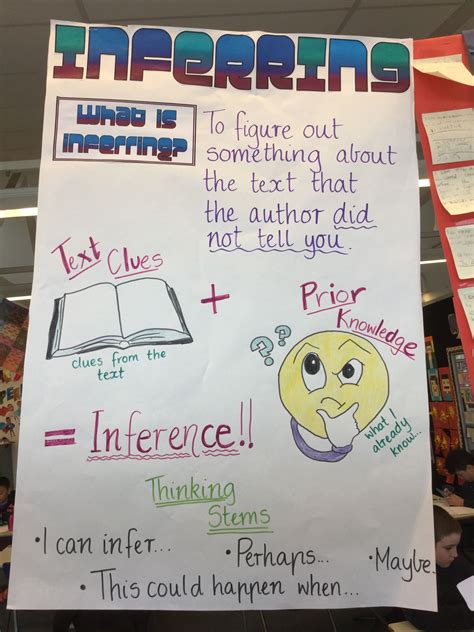 INFERRING
What is
inferring?
To figure out
something about
the text that
the author did
not tell you.
Text Clues
clues from the
text
+
Prior
Knowledge
? ?
what I
already
know...
= Inference!!
Thinking
Stems
• I can infer...
• Perhaps...
• Maybe
• This could happen when...